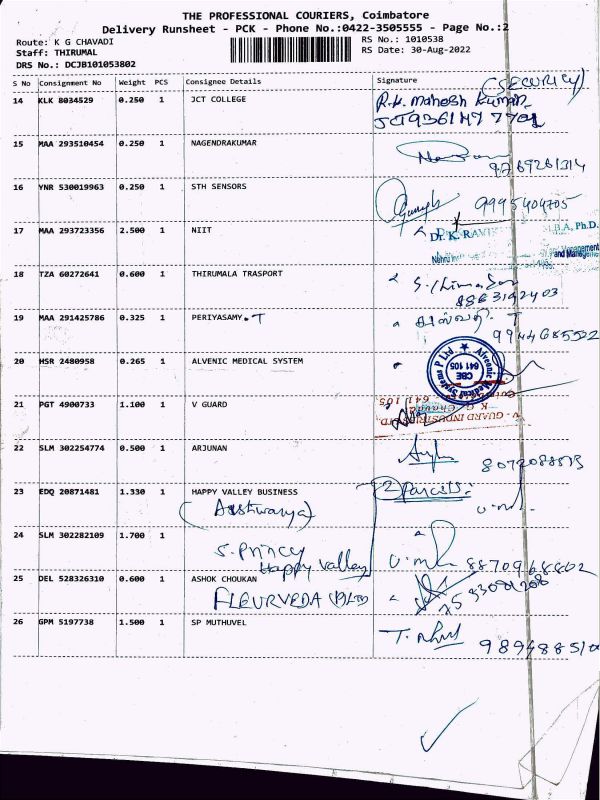 THE PROFESSIONAL COURIERS, Coimbatore
Delivery Runsheet - PCK - Phone No.:0422-3505555 - Page No.:2
Route: K G CHAVADI
Staff: THIRUMAL
DRS No.: DCJB101053802
RS No.: 1010538
RS Date: 30-Aug-2022
S No Consignment No Weight PCS Consignee Details Signature
(SECURITY)
14 KLK 8034529 0.250 1 JCT COLLEGE R.K. Mahesh Kumar
15 MAA 293510454 0.250 1 NAGENDRAKUMAR
9789261314
16 YNR 530019963 0.250 1 STH SENSORS 9995404705
17 MAA 293723356 2.500 1 NIIT Dr. K. RAVI M.B.A, Ph.D.
18 TZA 60272641 0.600 1 THIRUMALA TRASPORT
19 MAA 291425786 0.325 1 PERIYASAMY. T
9944685522
20 HSR 2480958 0.265 1 ALVENIC MEDICAL SYSTEM Alvenic Medical Systems P Ltd. CBE 641 105
21 PGT 4900733 1.100 1 V GUARD V. GUARD INDUSTRIES LTD.
22 SLM 302254774 0.500 1 ARJUNAN
23 EDQ 20871481 1.330 1 HAPPY VALLEY BUSINESS 2 Parcels
(Aishwarya)
24 SLM 302282109 1.700 1 S. Princy
Happy Valley 8870968802
25 DEL 528326310 0.600 1 ASHOK CHOUKAN
FLEURVEDA (P) LTD
26 GPM 5197738 1.500 1 SP MUTHUVEL